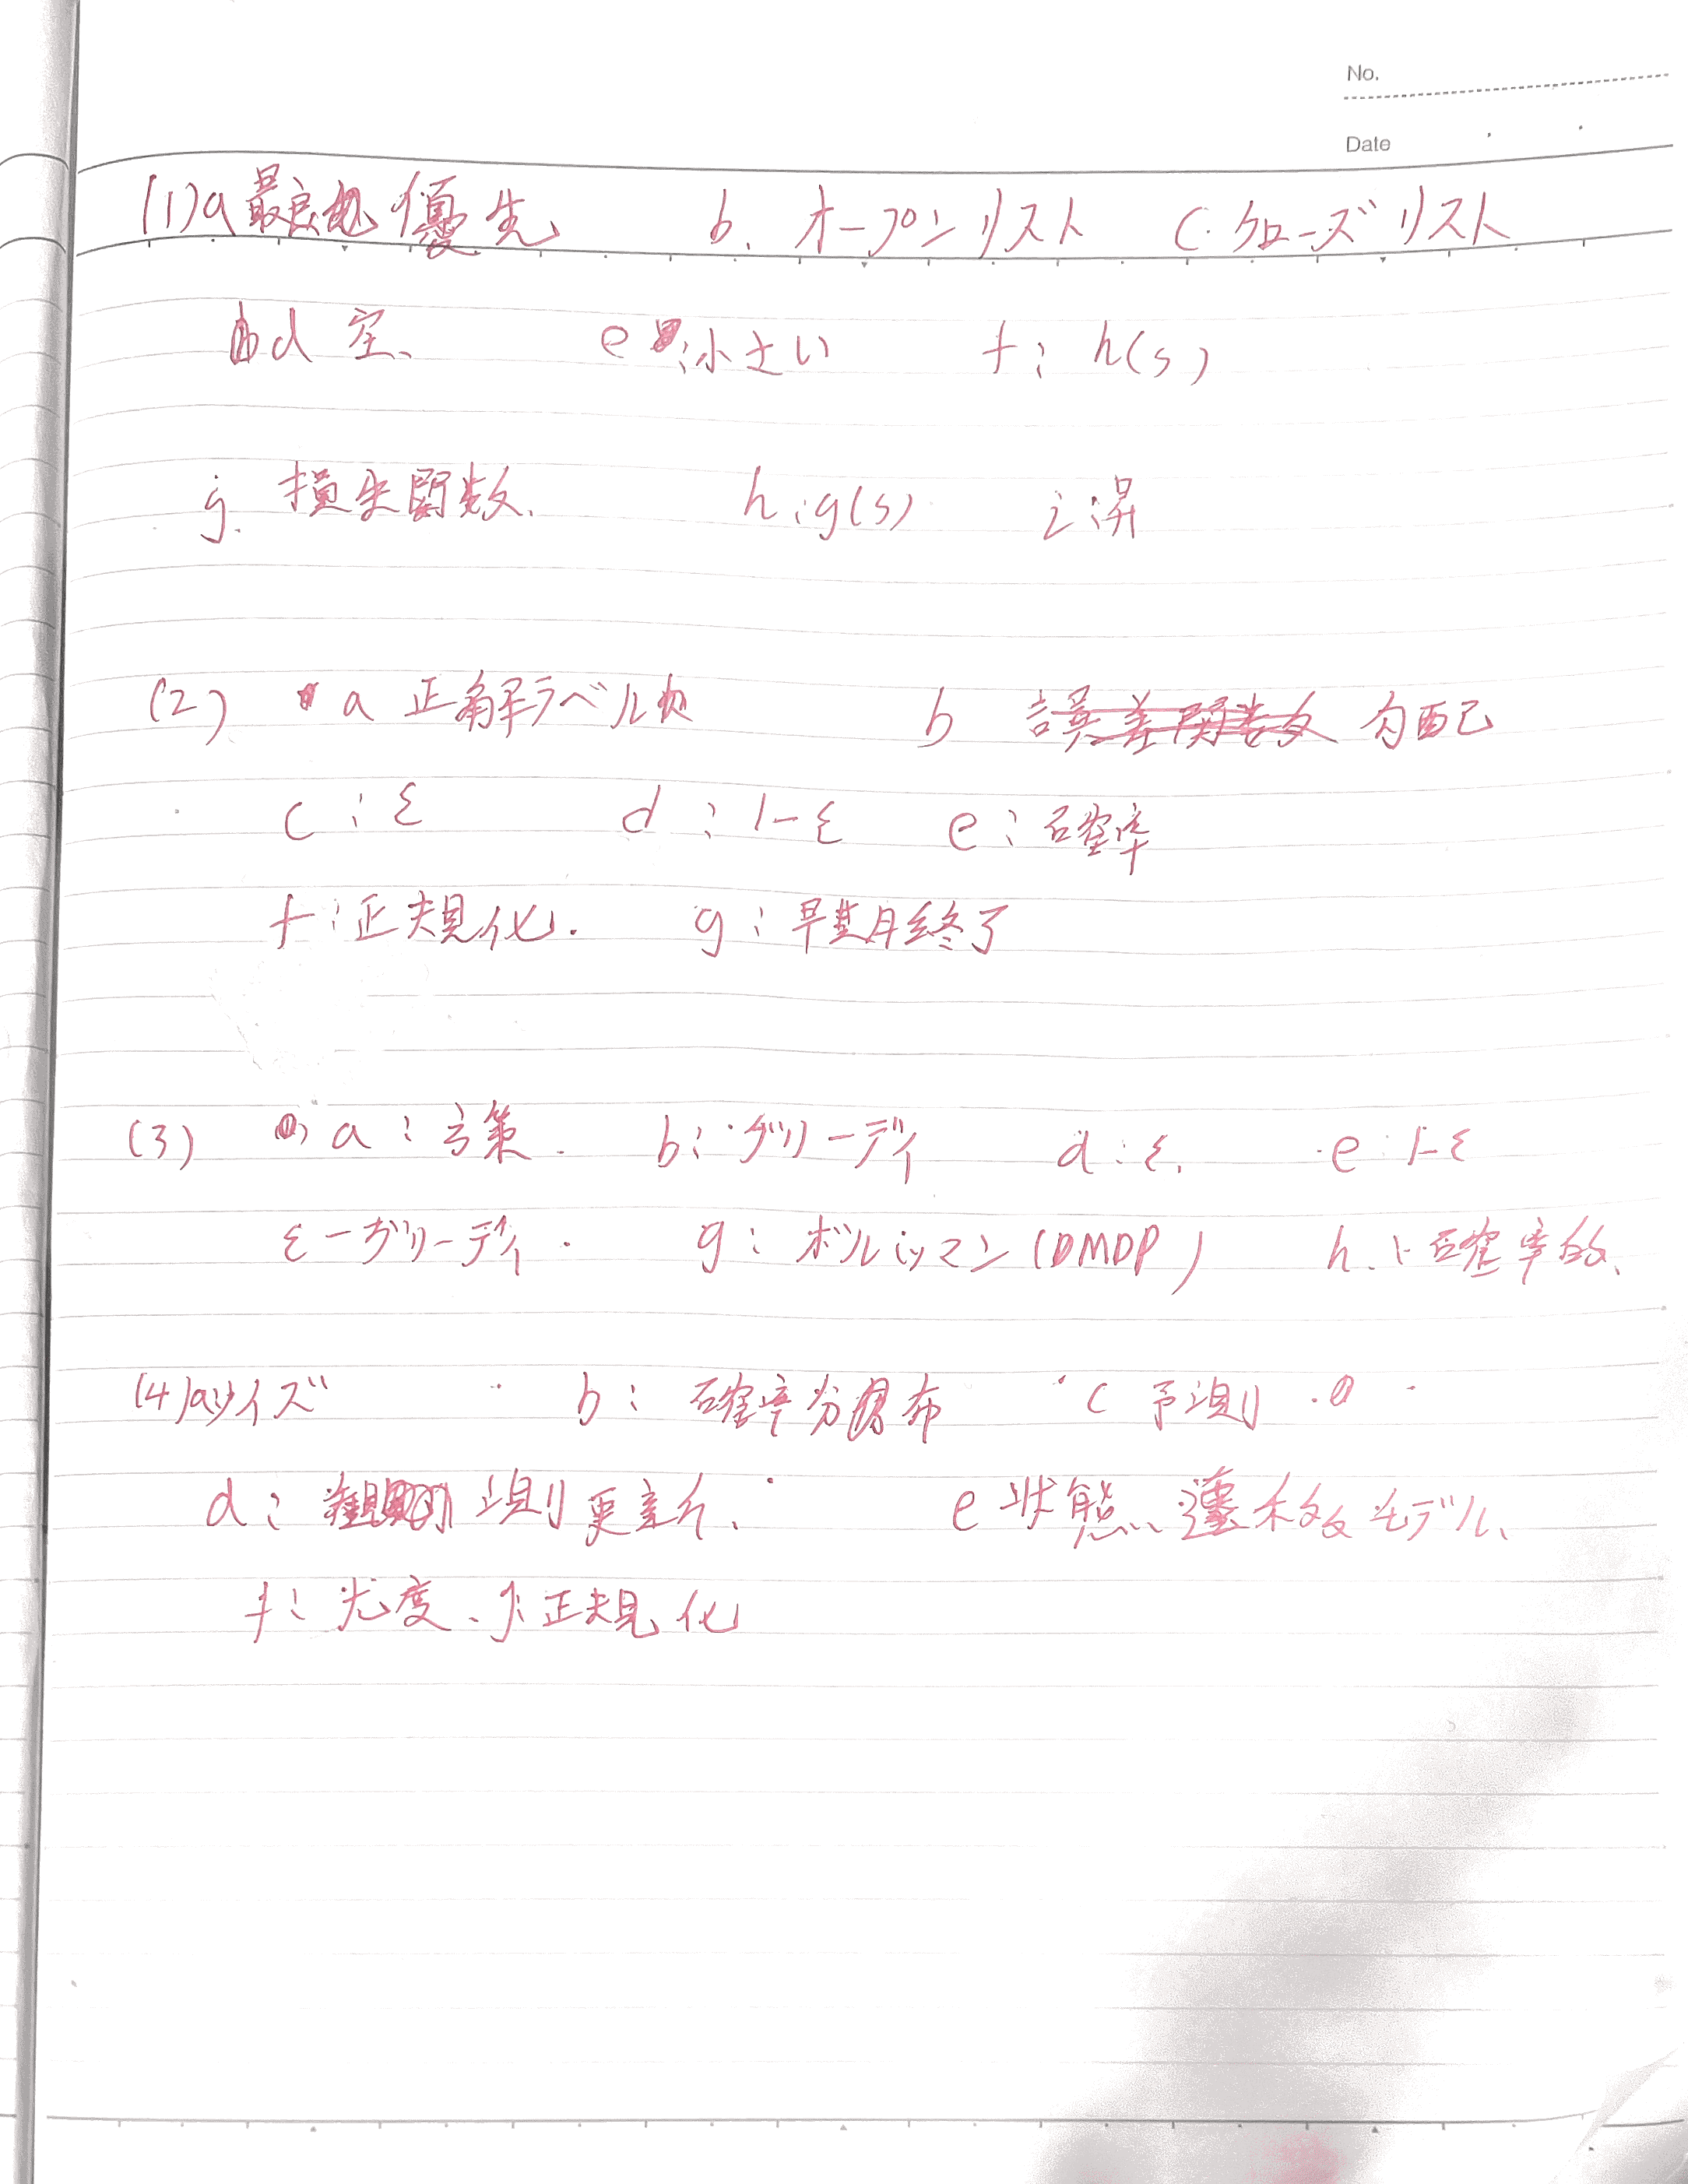 No.
Date
(1)a 最良優先 b. オープンリスト C. クローズリスト
d 空、 e:小さい f: h(s)
g. 損失関数. h:g(s) i:昇
(2) a 正解ラベル b 誤差関数 勾配
c:ε d:1-ε e:確率
f:正規化. g:早期終了
(3) a:方策. b:グリーディ d:ε. e:1-ε
ε-グリーディ. g:ボルツマン(DMDP) h.:確率的、
(4)aサイズ b:確率分布 c 予測
d: 測更新、 e 状態遷移モデル、
f:尤度、g:正規化